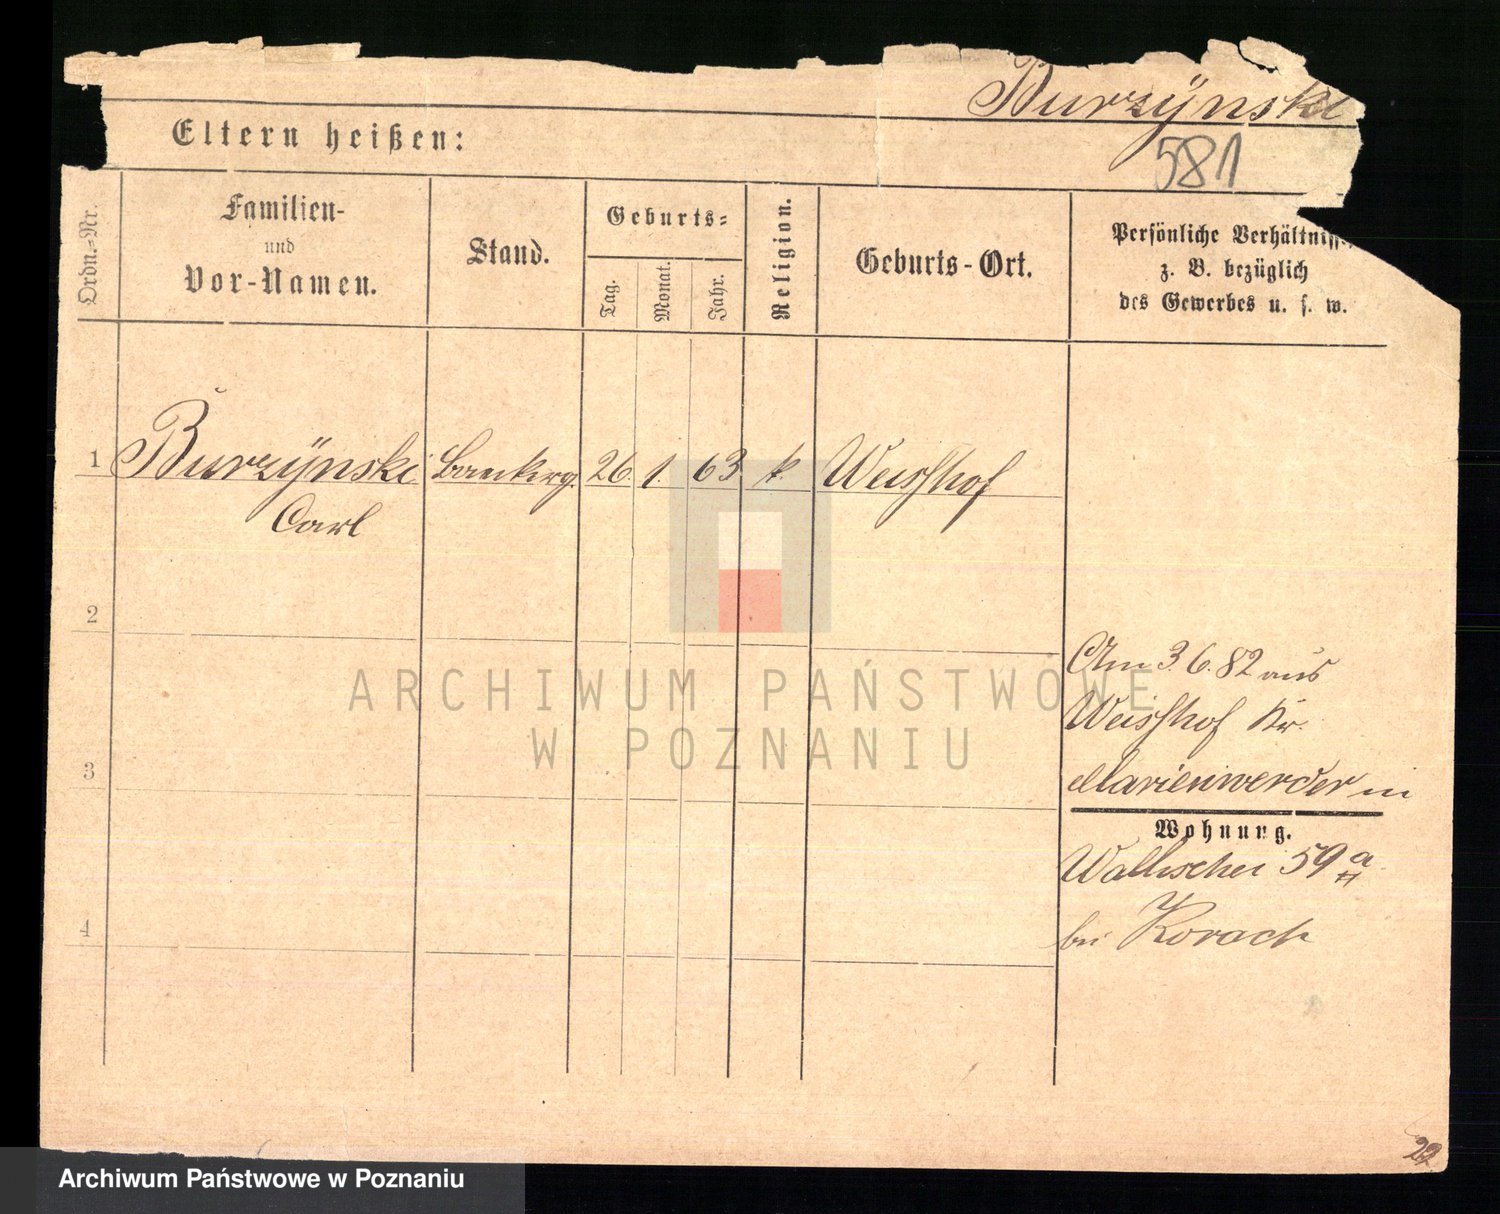 Burzÿnski
581
Eltern heißen:
Ordn.-Nr.
Familien-
und
Vor-Namen.
Stand.
Geburts-
Tag.
Monat.
Jahr.
Religion.
Geburts-Ort.
Persönliche Verhältniss
z. B. bezüglich
des Gewerbes u. s. w.
1 Burzÿnski 26. 1. 63 k. Weisshof
Carl
2
3
4
Am 3. 6. 82 aus
Weisshof Kr.
Marienwerder in
Wohnung.
Wallischei 59 a
bei Korach
22
ARCHIWUM PAŃSTWOWE
W POZNANIU
Archiwum Państwowe w Poznaniu